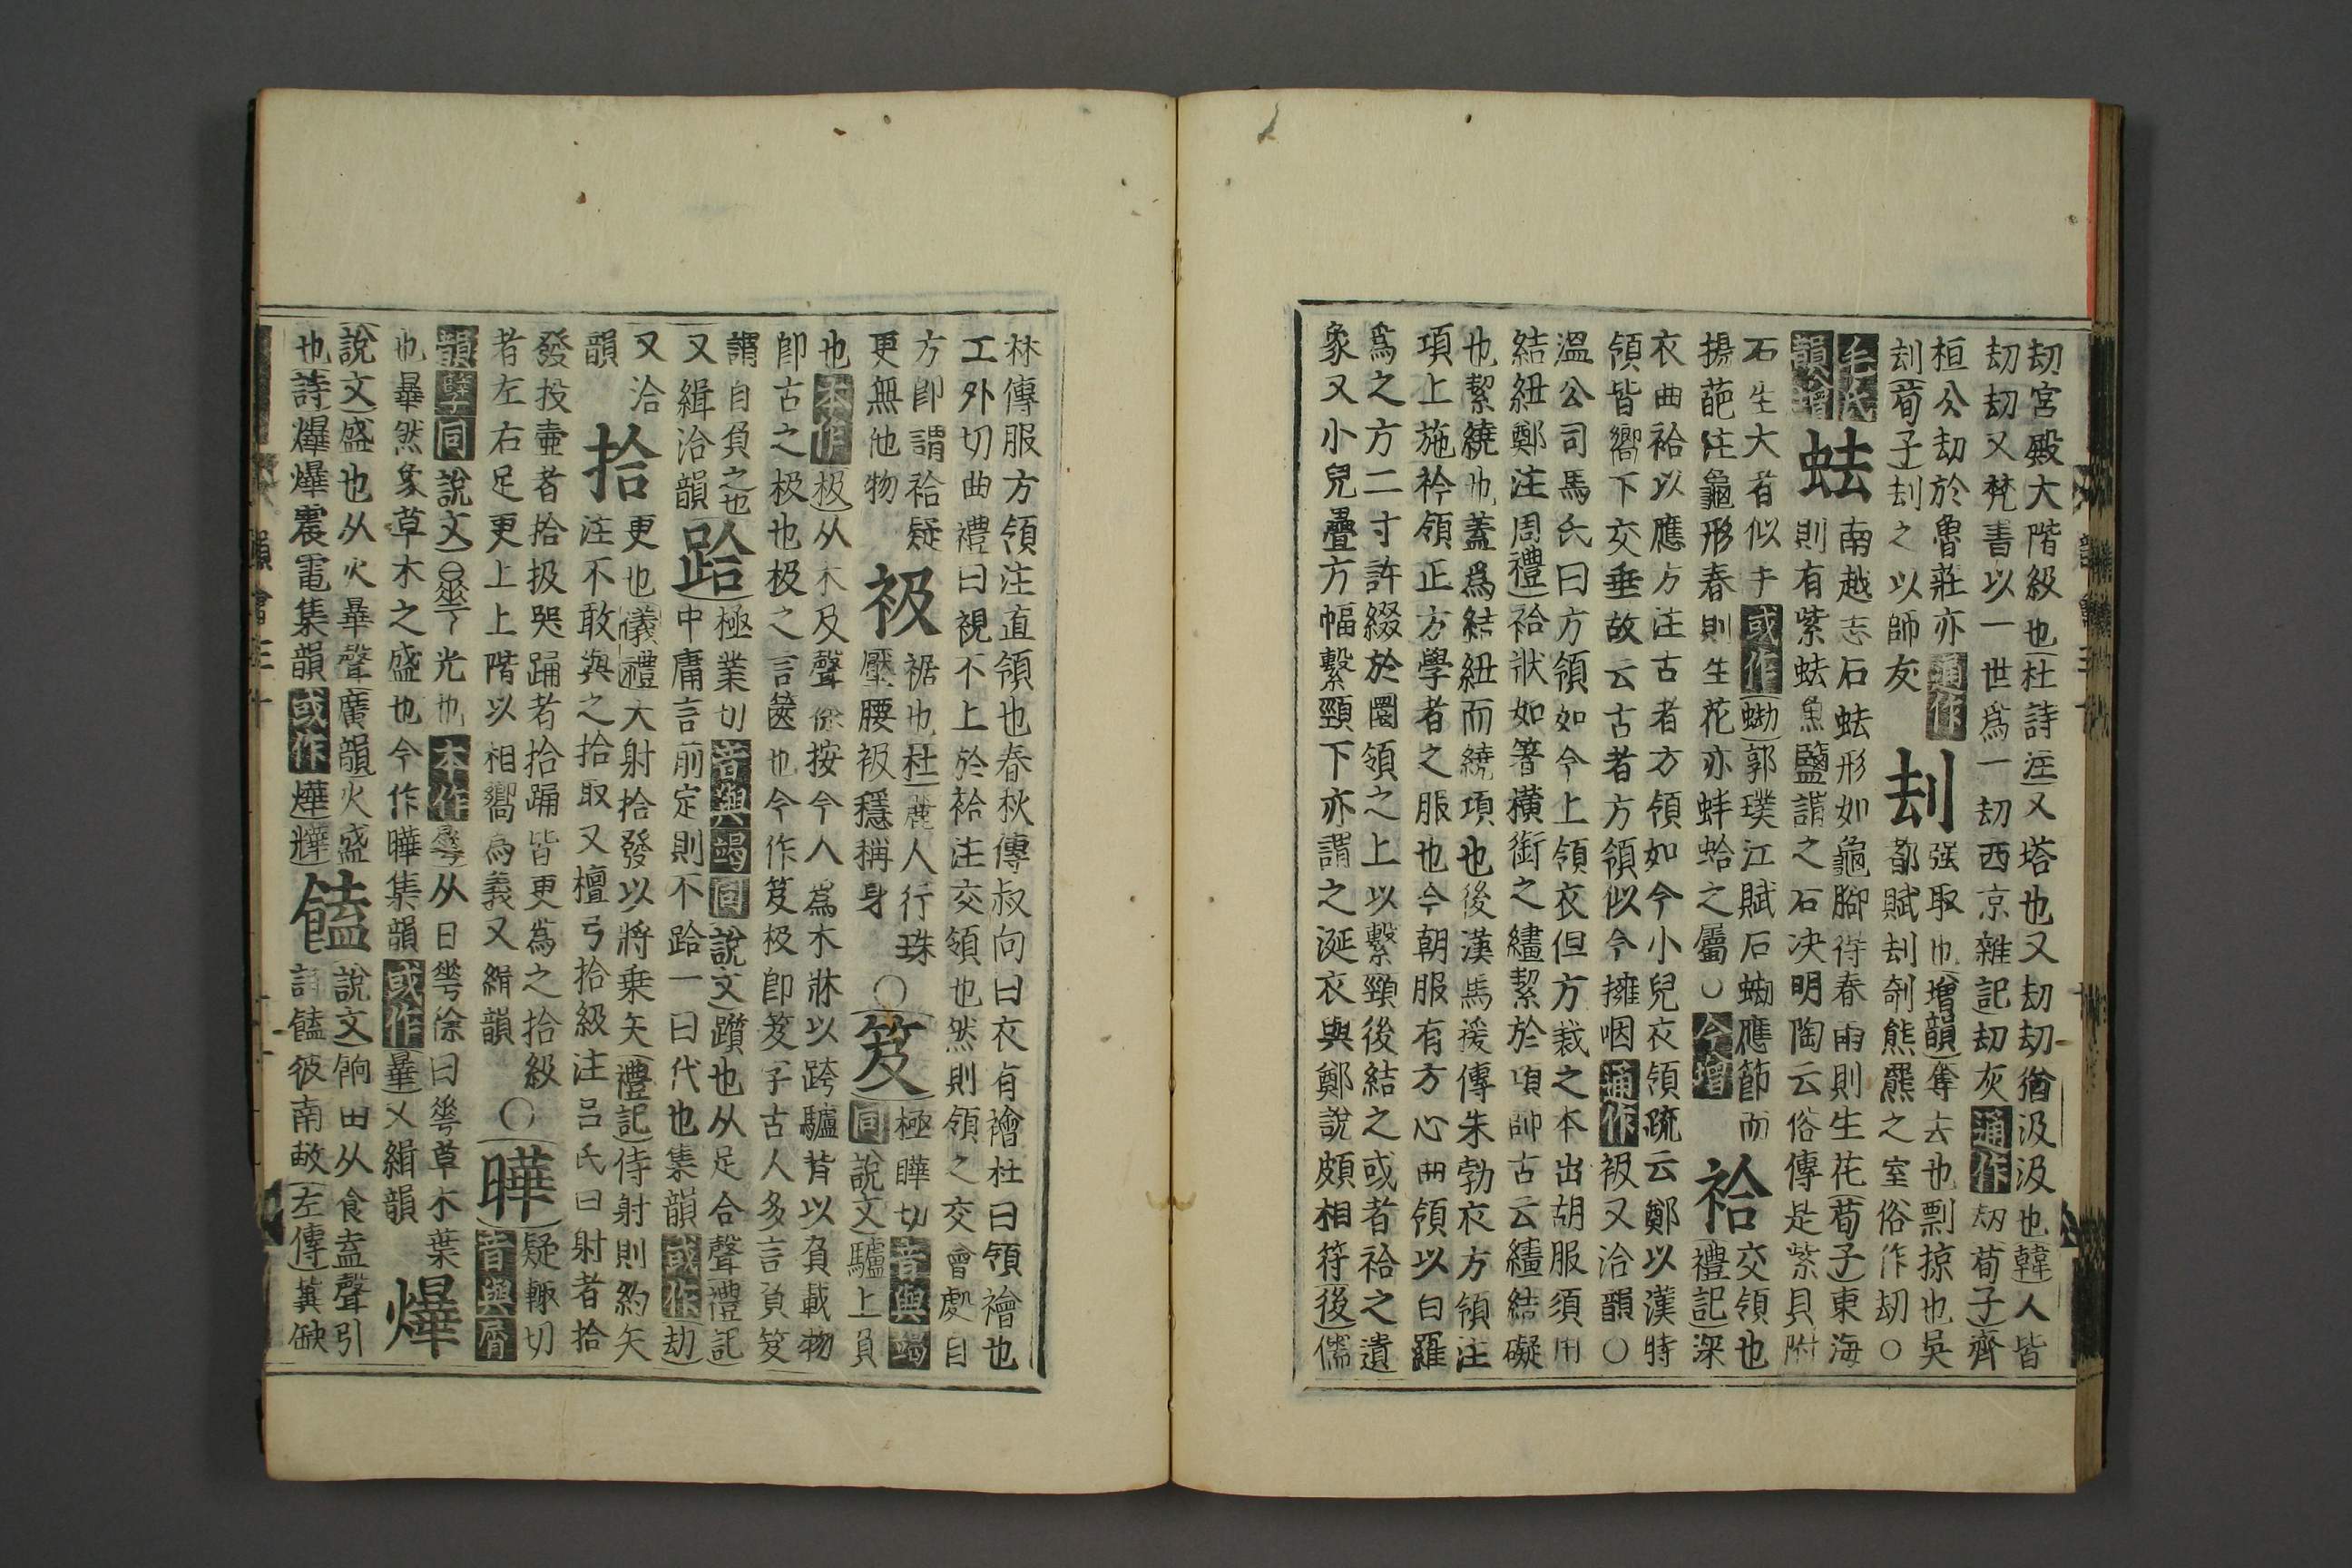 刧宮殿大階級也杜詩注又塔也又刧刧猶汲汲也韓人皆
刧刧又梵書以一世爲一刧西京雜記刧灰通作刼荀子齊
桓公刧於魯莊亦通作
刦荀子刦之以師友
刦
强取也增韻奪去也剽掠也吳
都賦刦剞熊羆之室俗作刧○
毛氏
韻增
𧉧
南越志石𧉧形如龜腳得春雨則生花荀子東海
則有紫𧉧魚鹽謂之石决明陶云俗傳是紫貝附
石生大者似手或作蜐郭璞江賦石蜐應節而
揚葩注龜形春則生花亦蚌蛤之屬○今增
袷
交領也
禮記深
衣曲袷以應方注古者方領如今小兒衣領疏云鄭以漢時
領皆嚮下交垂故云古者方領似今擁咽通作衱又洽韻○
溫公司馬氏曰方領如今上領衣但方裁之本出胡服須用
結紐鄭注周禮袷狀如箸横銜之繣絜於項師古云繣結礙
也絜繞也蓋爲結紐而繞項也後漢馬援傳朱勃衣方領注
項上施衿領正方學者之服也今朝服有方心曲領以白羅
爲之方二寸許綴於圜領之上以繫頸後結之或者袷之遺
象又小兒疊方幅繫頸下亦謂之涎衣與鄭說頗相符後儒
林傳服方領注直領也春秋傳叔向曰衣有襘杜曰領襘也
工外切曲禮曰視不上於袷注交領也然則領之交會處自
方卽謂袷疑
更無他物
衱
裾也杜麗人行珠
壓腰衱穩稱身○
笈
極曄切音與竭
同說文驢上負
也本作极从木及聲徐按今人爲木牀以跨驢背以負載物
卽古之极也极之言篋也今作笈极卽笈字古人多言負笈
謂自負之也
又緝洽韻
跲
極業切音與竭同說文躓也从足合聲禮記
中庸言前定則不跲一曰代也集韻或作刧
又洽
韻
拾
更也儀禮大射拾發以將乗矢禮記侍射則約矢
注不敢與之拾取又檀弓拾級注呂氏曰射者拾
發投壷者拾扱哭踊者拾踊皆更爲之拾級
者左右足更上上階以相嚮為義又緝韻○
曄
疑輙切
音與屑
韻孼同說文光也本作从日𠌶徐曰𠌶草木葉
也曅然象草木之盛也今作曄集韻或作曅又緝韻
爗
說文盛也从火曅聲廣韻火盛
也詩爗爗震電集韻或作燁
饁
說文餉田从食盍聲引
詩饁彼南畝左傳冀缺